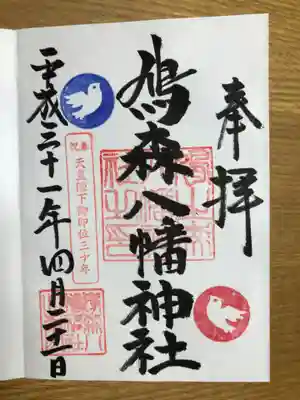 奉拝
鳩森八幡神社
奉祝
天皇陛下御即位三十年
平成三十一年四月二十一日